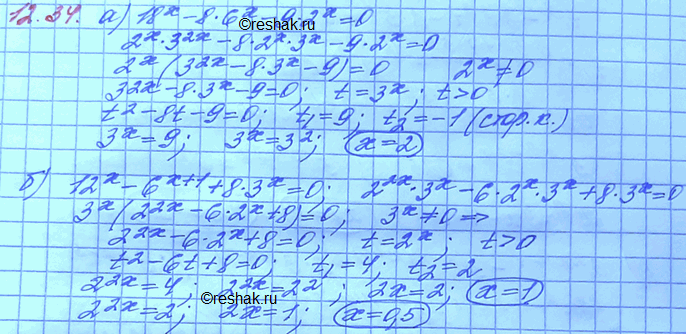 12.34. а) 18ˣ-8·6ˣ-9·2ˣ=0
©reshak.ru
2ˣ·3²ˣ-8·2ˣ·3ˣ-9·2ˣ=0
2ˣ(3²ˣ-8·3ˣ-9)=0 2ˣ≠0
3²ˣ-8·3ˣ-9=0; t=3ˣ; t>0
t²-8t-9=0; t₁=9; t₂=-1 (стор.к.)
3ˣ=9; 3ˣ=3²; x=2
б) 12ˣ-6ˣ⁺¹+8·3ˣ=0; 2²ˣ·3ˣ-6·2ˣ·3ˣ+8·3ˣ=0
3ˣ(2²ˣ-6·2ˣ+8)=0; 3ˣ≠0=>
2²ˣ-6·2ˣ+8=0; t=2ˣ; t>0
t²-6t+8=0; t₁=4; t₂=2
2²ˣ=4; 2²ˣ=2²; 2x=2; x=1
2²ˣ=2; 2x=1; x=0,5
©reshak.ru